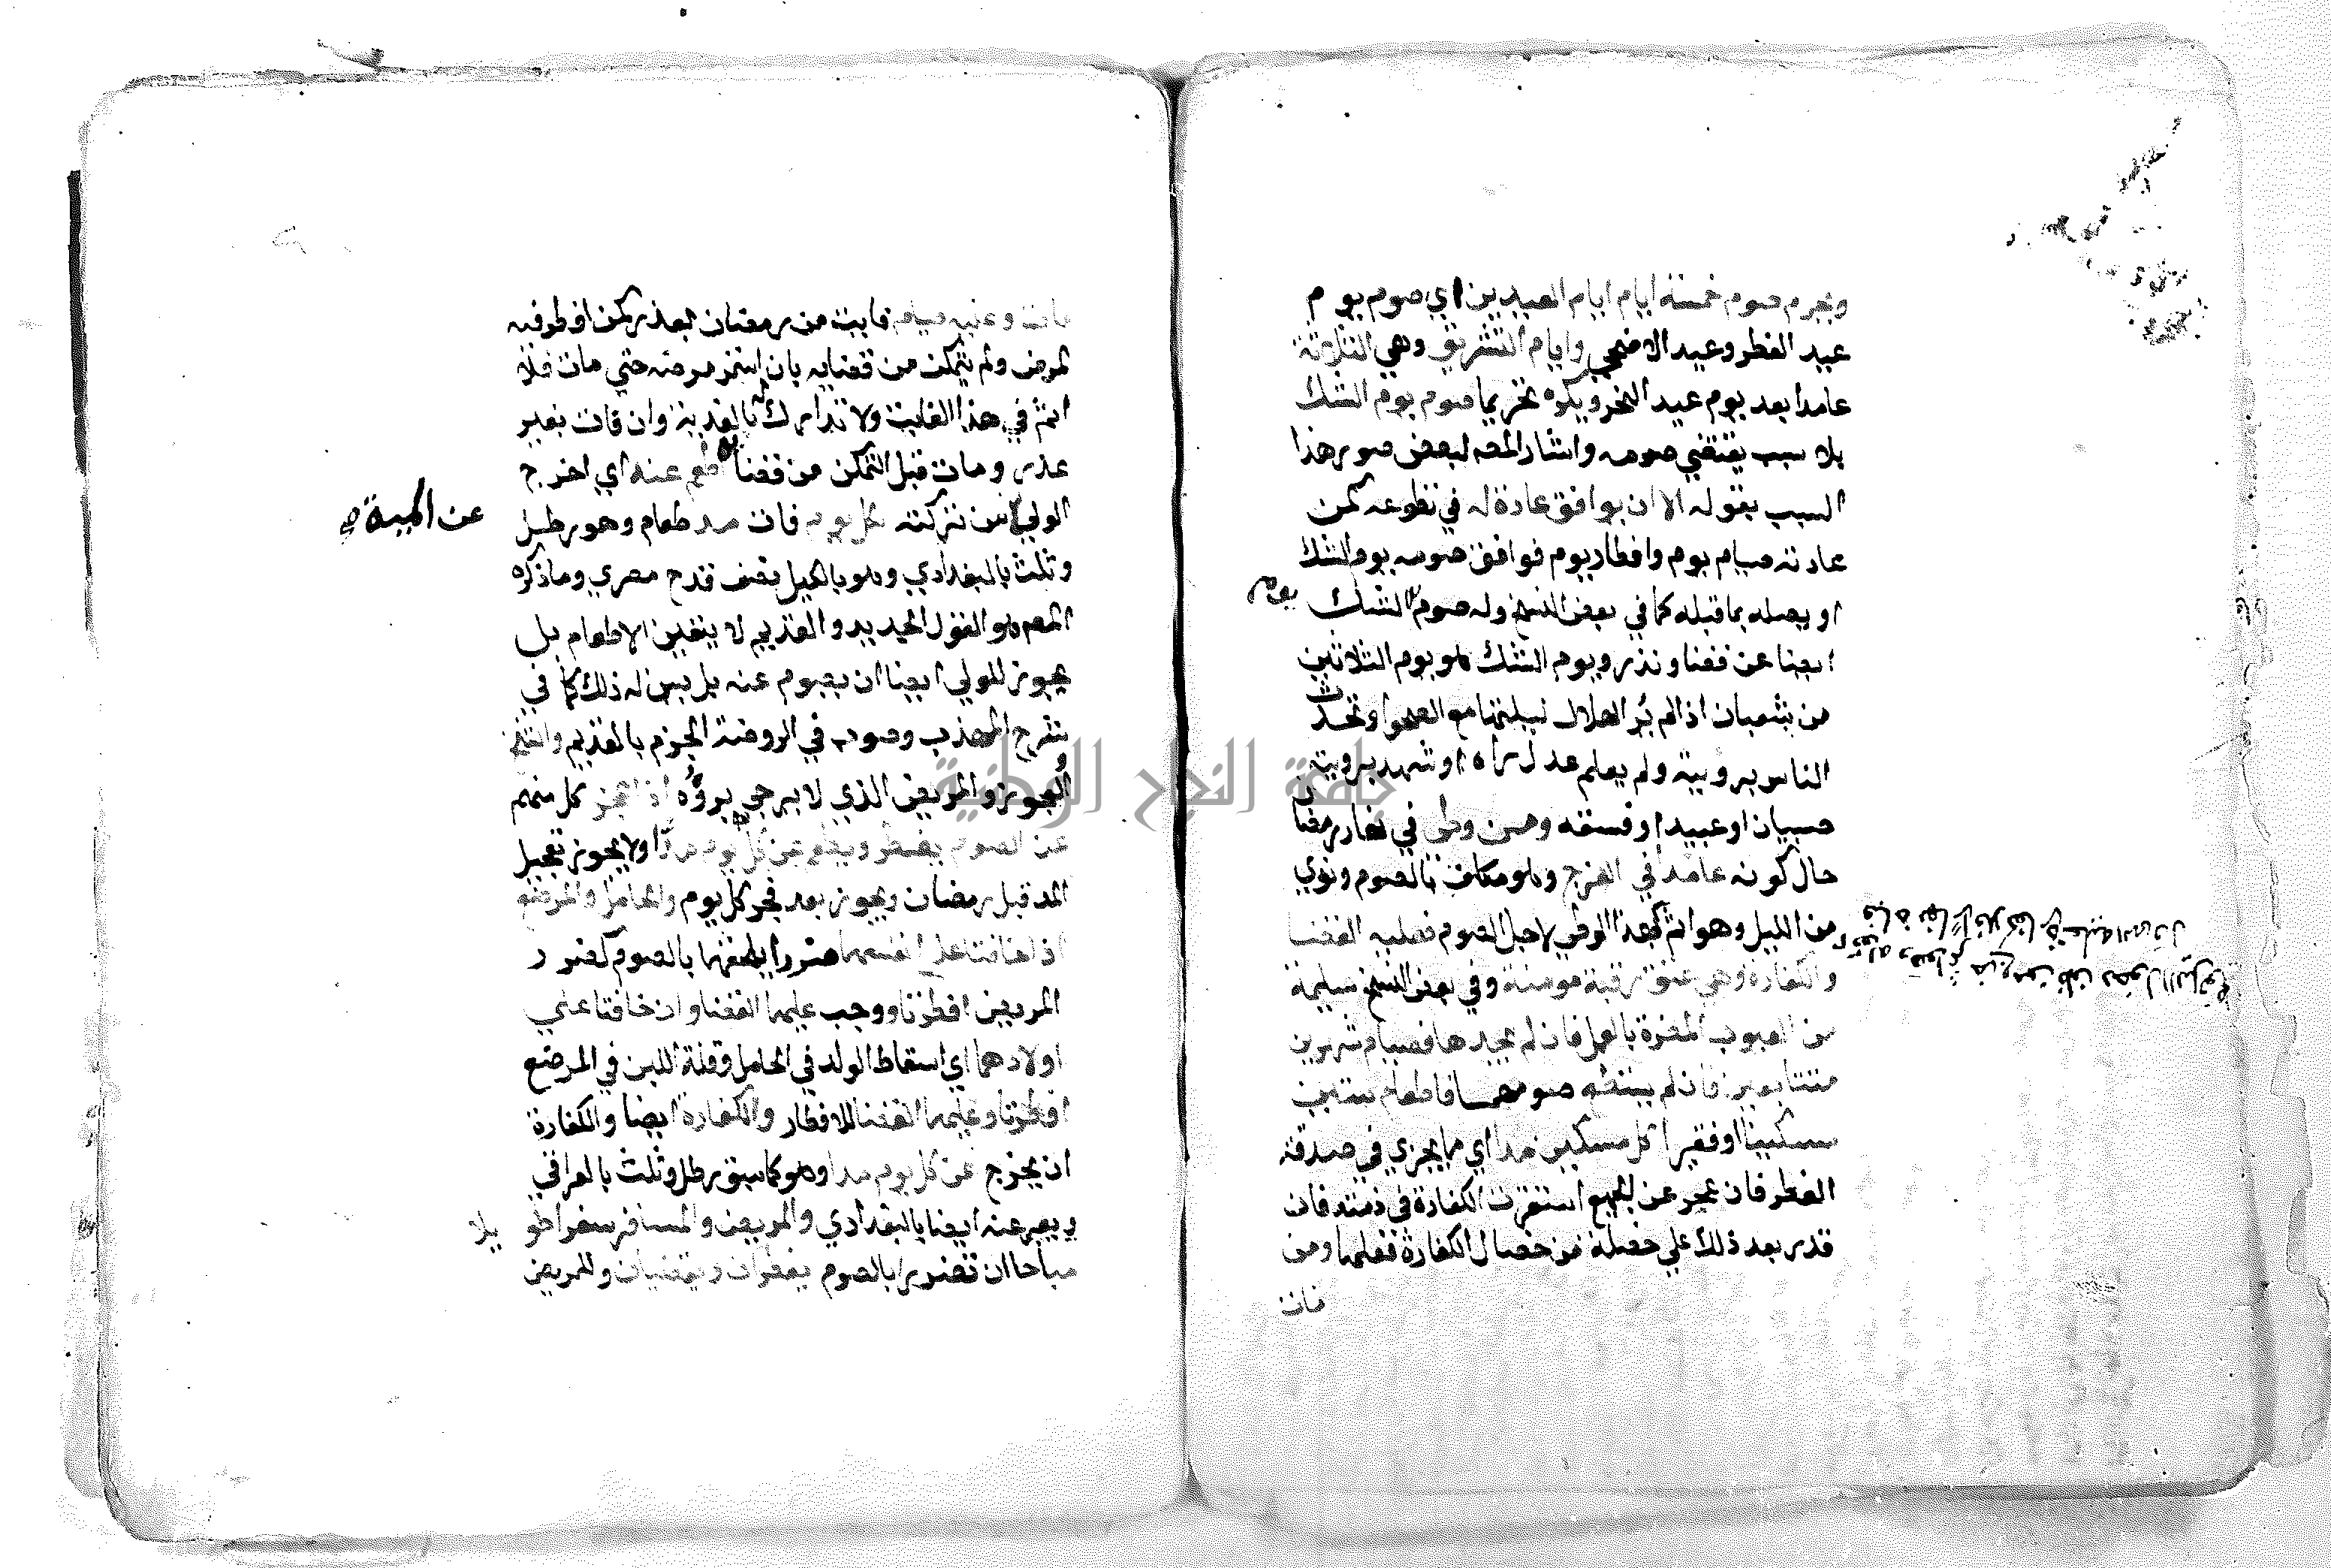 ويحرم صوم خمسة ايام ايام العيدين اي صوم يوم
عيد الفطر وعيد الاضحي وايام التشريق وهي الثلاثة
عامدا بعد يوم عيد النحر ويكره تحريما صوم يوم الشك
بلا سبب يقتضي صومه واشار المص لبعض صور هذا
السبب بقوله الا ان يوافق عادة له في تطوعه كمن
عادته صيام يوم وافطار يوم فوافق صومه يوم الشك
او يصله بما قبله كما في بعض النسخ وله صوم الشك
يوم
ايضا عن قضا ونذر ويوم الشك هو يوم الثلاثين
من شعبان اذا لم ير الهلال ليلتها مع الصحو وتحدث
الناس برويته ولم يعلم عدل رآه او شهد برويته
صبيان او عبيد او فسقه ومن وطي في نهار رمضان
حال كونه عامدا في الفرج وهو مكلف بالصوم ونوي
من الليل وهو اثم بهذا الوطي لاجل الصوم فعليه القضا
والكفارة وهي عتق رقبة مومنة وفي بعض النسخ سليمة
من العيوب المضرة بالعمل فان لم يجدها فصيام شهرين
متتابعين فان لم يستطع صومهما فاطعام ستين
مسكينا او فقيرا كل مسكين مدا اي مما يجزي في صدقة
الفطر فان عجز عن الجميع استقرت الكفارة في ذمته فان
قدر بعد ذلك علي خصلة من خصال الكفارة فعلها ومن
مات
مات وعليه صيام فايت من رمضان بعذر كمن افطر فيه
لمرض ولم يتمكن من قضايه بان استمر مرضه حتي مات فلا
اثم في هذا الفايت ولا تدارك له بالفدية وان فات بغير
عذر ومات قبل التمكن من قضايه اطعم عنه اي اخرج
الولي من تركته لكل يوم فات مد طعام وهو رطل
عن الميت صح
وثلث بالبغدادي وهو بالكيل نصف قدح مصري وما ذكره
المص هو القول الجديد والقديم لا يتعين الاطعام بل
يجوز للولي ايضا ان يصوم عنه بل يسن له ذلك كما في
شرح المهذب وصوب في الروضة الجزم بالقديم والشيخ
والعجوز والمريض الذي لا يرجي بروه اذا عجز كل منهم
عن الصوم يفطر ويطعم عن كل يوم مدا ولا يجوز تعجيل
المد قبل رمضان ويجوز بعد فجر كل يوم والحامل والمرضع
اذا خافتا علي انفسهما ضررا يلحقهما بالصوم كضرر
المريض افطرتا ووجب عليهما القضا وان خافتا علي
اولادهما اي اسقاط الولد في الحامل وقلة اللبن في المرضع
افطرتا وعليهما القضا للافطار والكفارة ايضا والكفارة
ان يخرج عن كل يوم مدا وهو كما سبق رطل وثلث بالعراقي
ويعبر عنه ايضا بالبغدادي والمريض والمسافر سفرا طويلا
مباحا ان تضررا بالصوم يفطران ويقضيان وللمريض